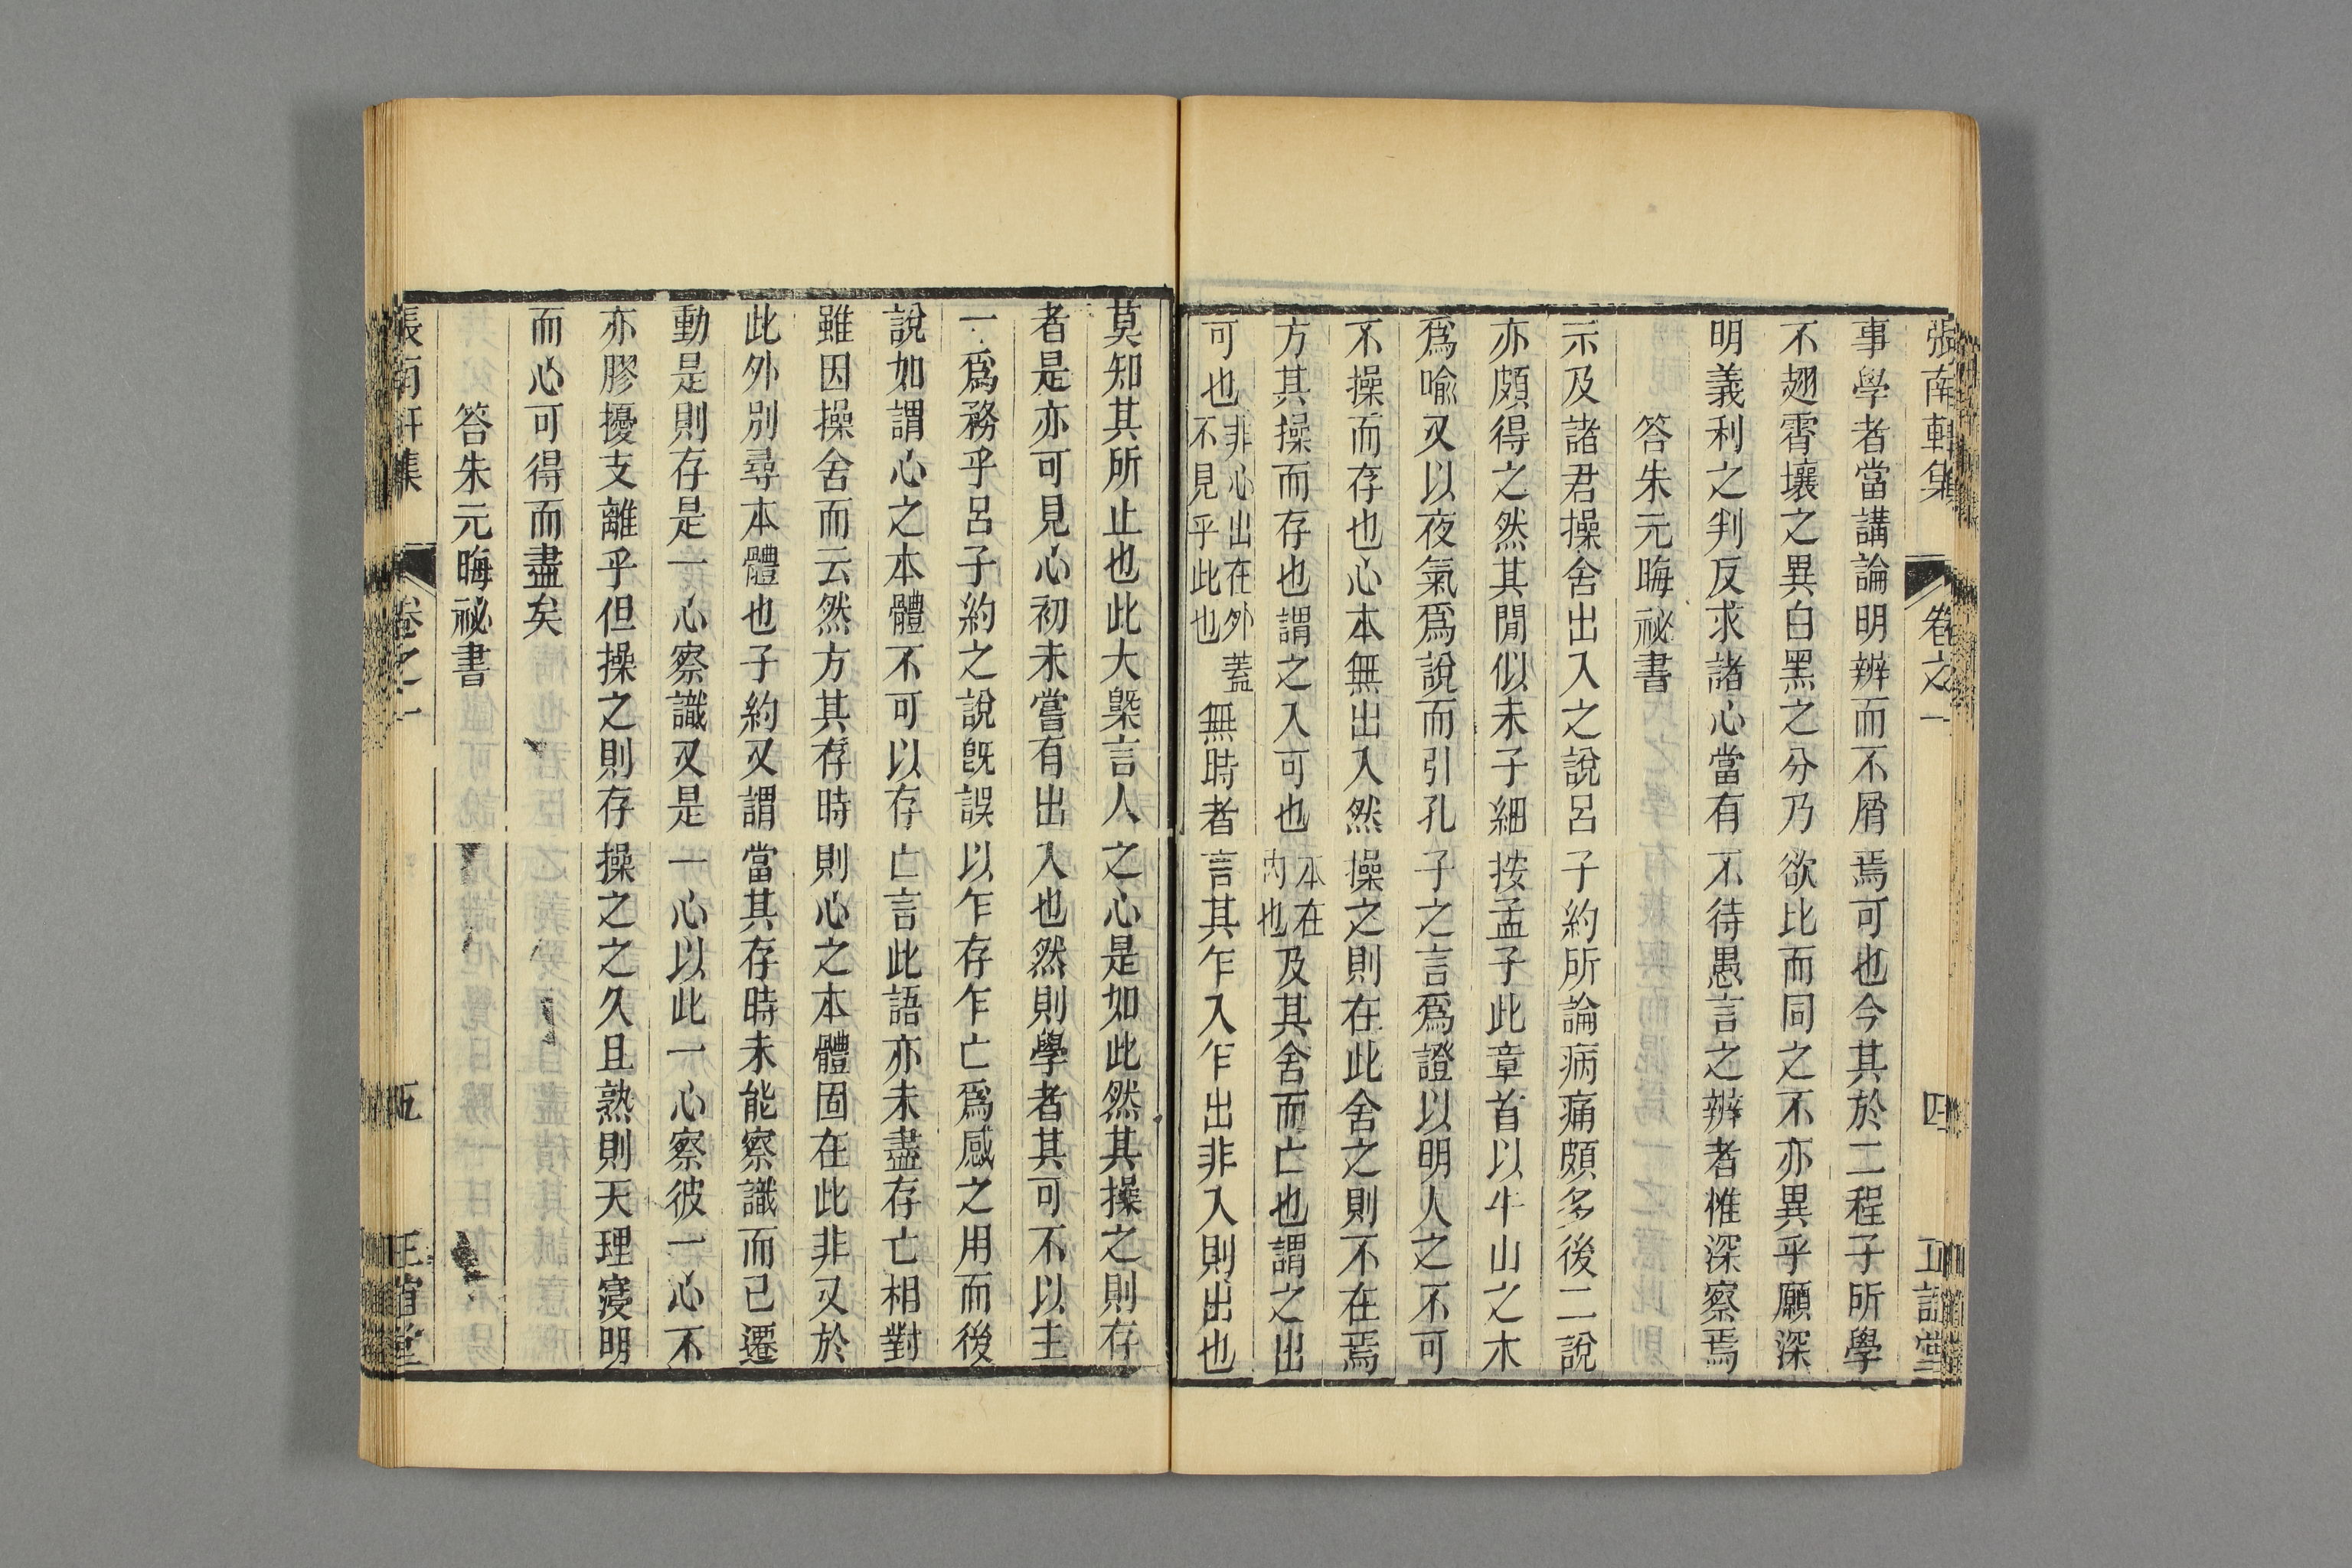 張南軒集 卷之一 四 正誼堂
事學者當講論明辨而不屑焉可也今其於二程子所學
不翅霄壤之異白黑之分乃欲比而同之不亦異乎願深
明義利之判反求諸心當有不待愚言之辨者惟深察焉
答朱元晦祕書
示及諸君操舍出入之說呂子約所論病痛頗多後二說
亦頗得之然其閒似未子細按孟子此章首以牛山之木
爲喩又以夜氣爲說而引孔子之言爲證以明人之不可
不操而存也心本無出入然操之則在此舍之則不在焉
方其操而存也謂之入可也本在內也及其舍而亡也謂之出
可也非心出在外蓋不見乎此也無時者言其乍入乍出非入則出也
莫知其所止也此大槩言人之心是如此然其操之則存
者是亦可見心初未嘗有出入也然則學者其可不以主
一爲務乎呂子約之說旣誤以乍存乍亡爲感之用而後
說如謂心之本體不可以存亡言此語亦未盡存亡相對
雖因操舍而云然方其存時則心之本體固在此非又於
此外別尋本體也子約又謂當其存時未能察識而已遷
動是則存是一心察識又是一心以此一心察彼一心不
亦膠擾支離乎但操之則存操之之久且熟則天理寖明
而心可得而盡矣
答朱元晦祕書
張南軒集 卷之一 五 正誼堂